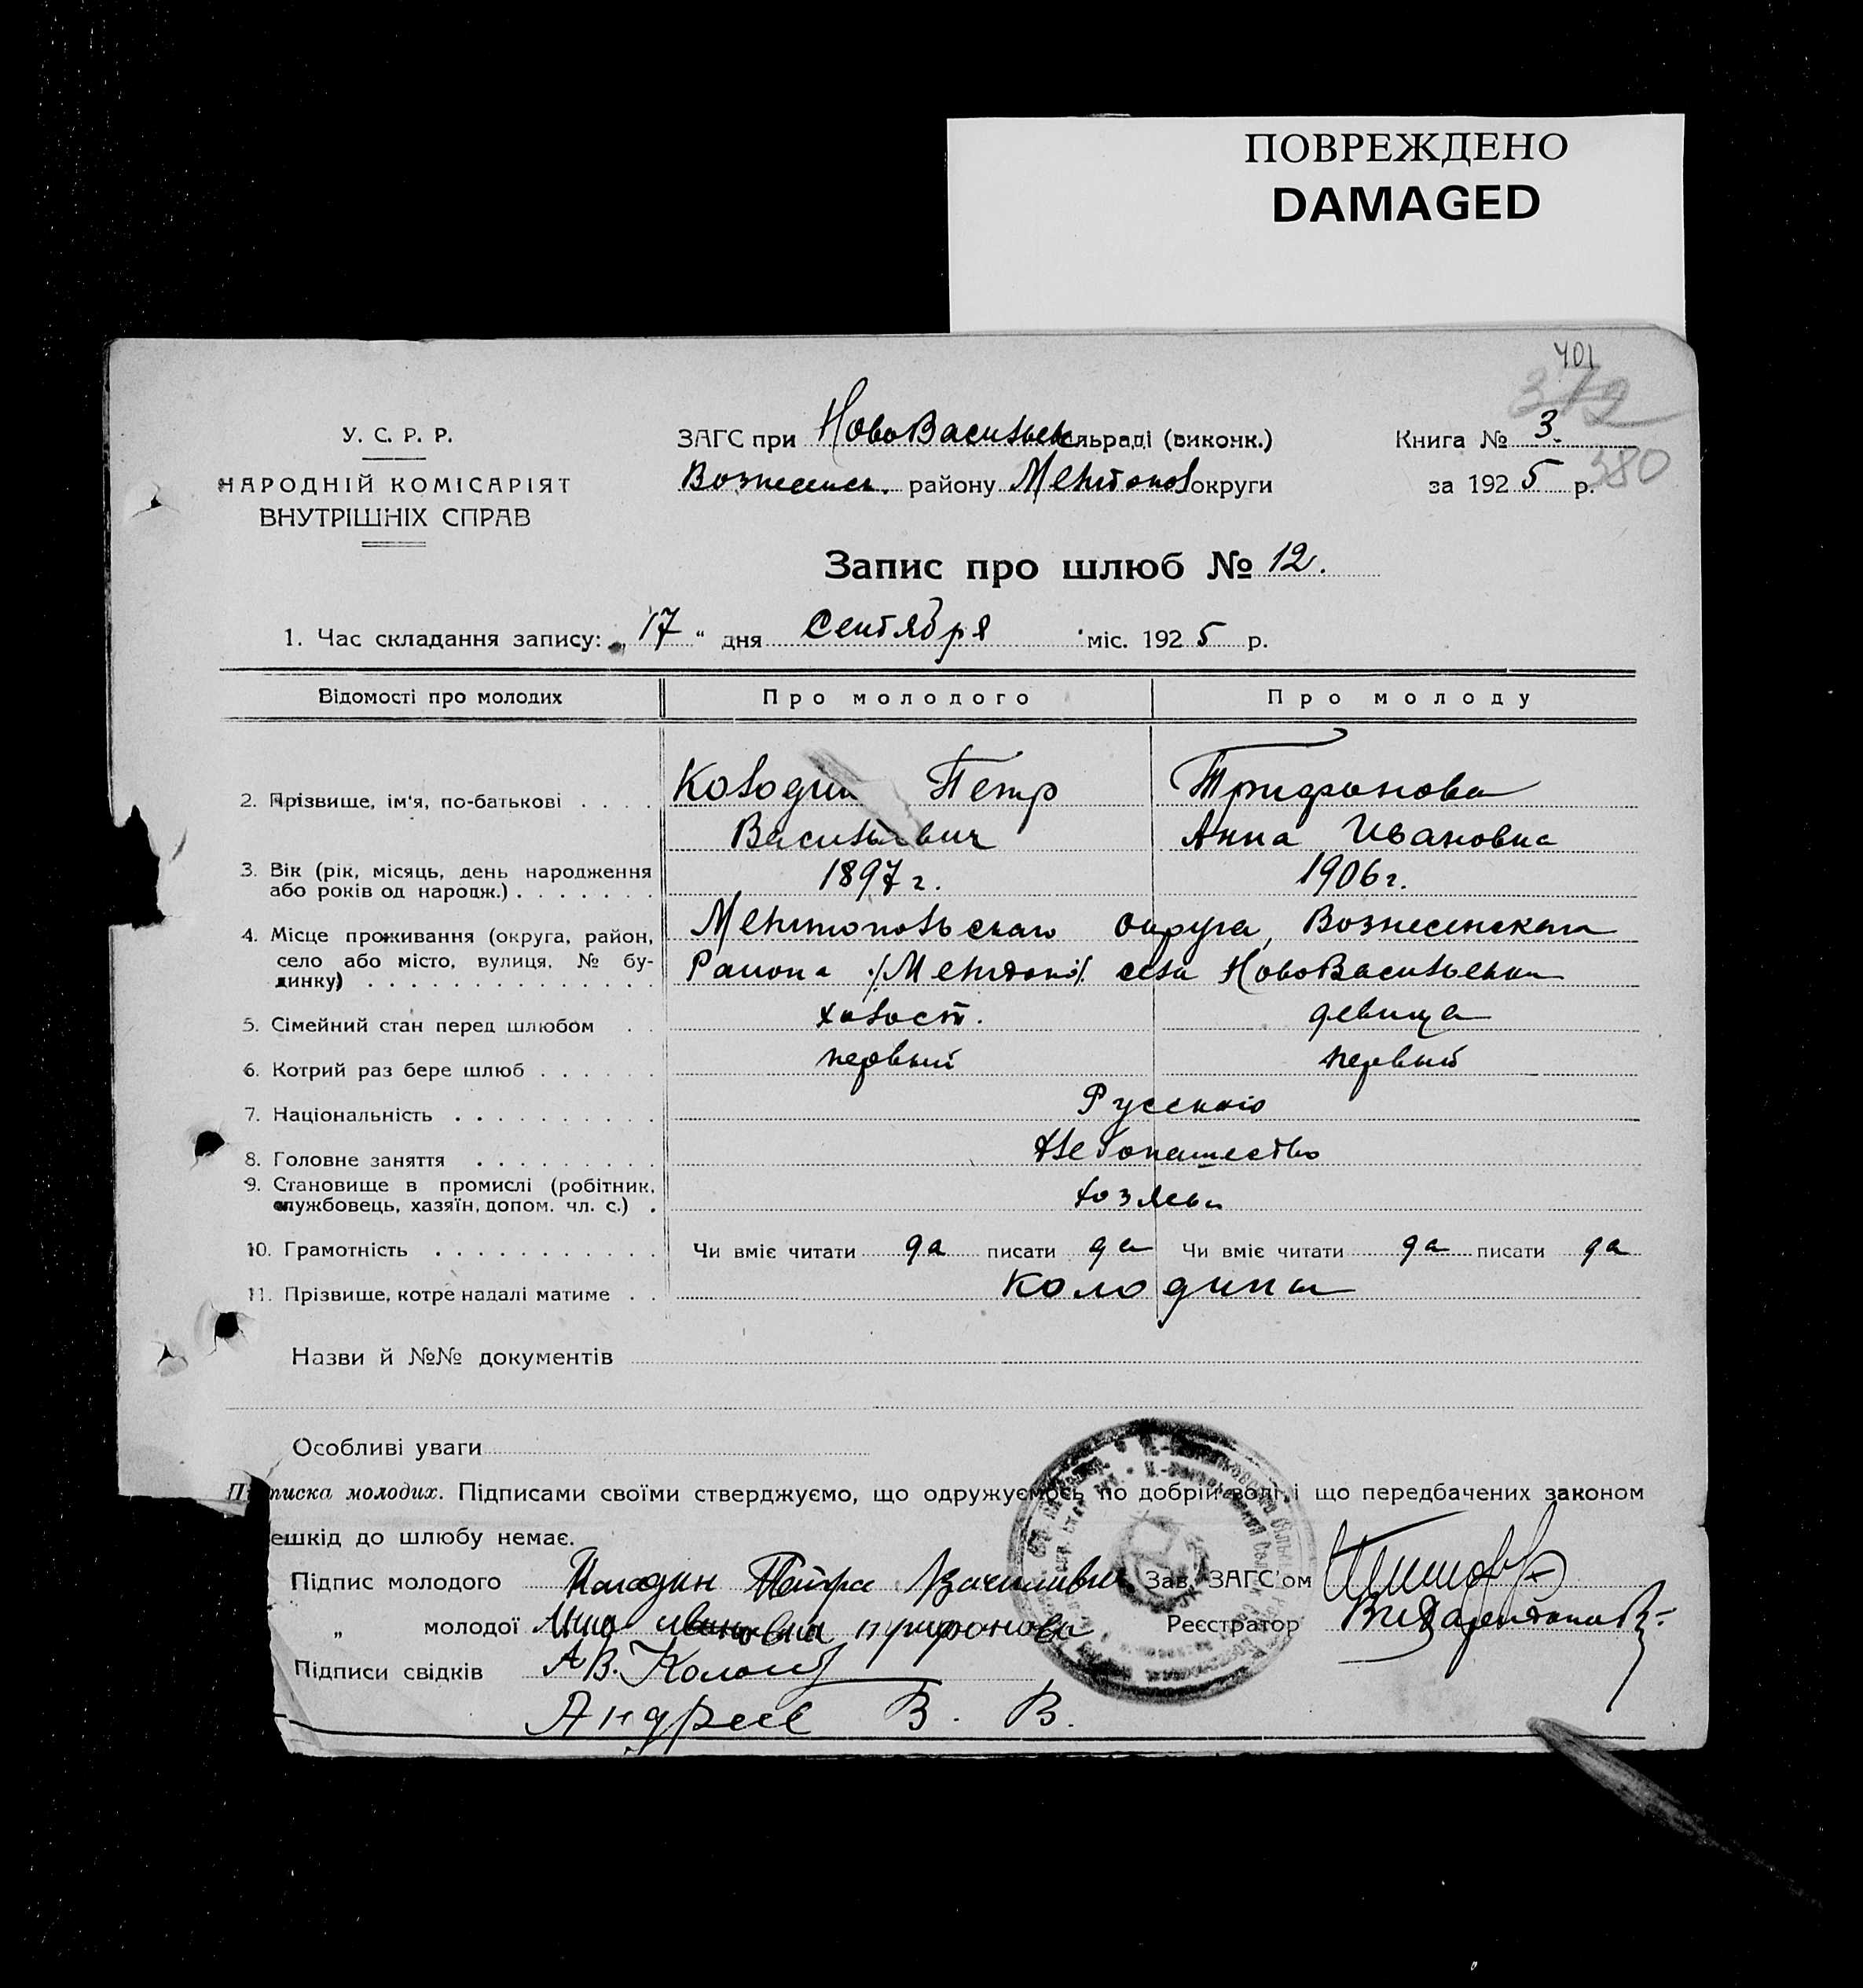 ПОВРЕЖДЕНО
DAMAGED
401
379
380
У. С. Р. Р.
НАРОДНІЙ КОМІСАРІЯТ
ВНУТРІШНІХ СПРАВ
ЗАГС при НовоВасильевсльраді (виконк.)
Вознесенск. району Мелитопол округи
Книга № 3.
за 1925 р.
Запис про шлюб № 12.
1. Час складання запису: „17“ дня Сентября міс. 1925 р.
Відомості про молодих Про молодого Про молоду
2. Прізвище, ім'я, по-батькові . . . . Колодин Петр Трифонова
Васильевич Анна Ивановна
3. Вік (рік, місяць, день народження
або років од народж.) . . . . . . . 1897 г. 1906 г.
4. Місце проживання (округа, район, Мелитопольскаго округа, Вознесенскаго
село або місто, вулиця, № бу- Района /Мелитоп/. села НовоВасильевки
динку) . . . . . . . . . . . . . .
5. Сімейний стан перед шлюбом . . холост. девица
6. Котрий раз бере шлюб . . . . . . первый первый
7. Національність . . . . . . . . . . Русского
8. Головне заняття . . . . . . . . . Хлебопашество
9. Становище в промислі (робітник,
службовець, хазяїн, допом. чл. с.) . хозяева
10. Грамотність . . . . . . . . . . . Чи вміє читати да писати да Чи вміє читати да писати да
11. Прізвище, котре надалі матиме . . Колодины
Назви й №№ документів
Особливі уваги
Підписка молодих. Підписами своїми стверджуємо, що одружуємось по добрій волі і що передбачених законом
ешкід до шлюбу немає.
Підпис молодого Колодин Петр Васильевич Зав. ЗАГС'ом
„ молодої Ана Ивановна Трифонова Реєстратор
Підписи свідків А В.
Андреев В. В.